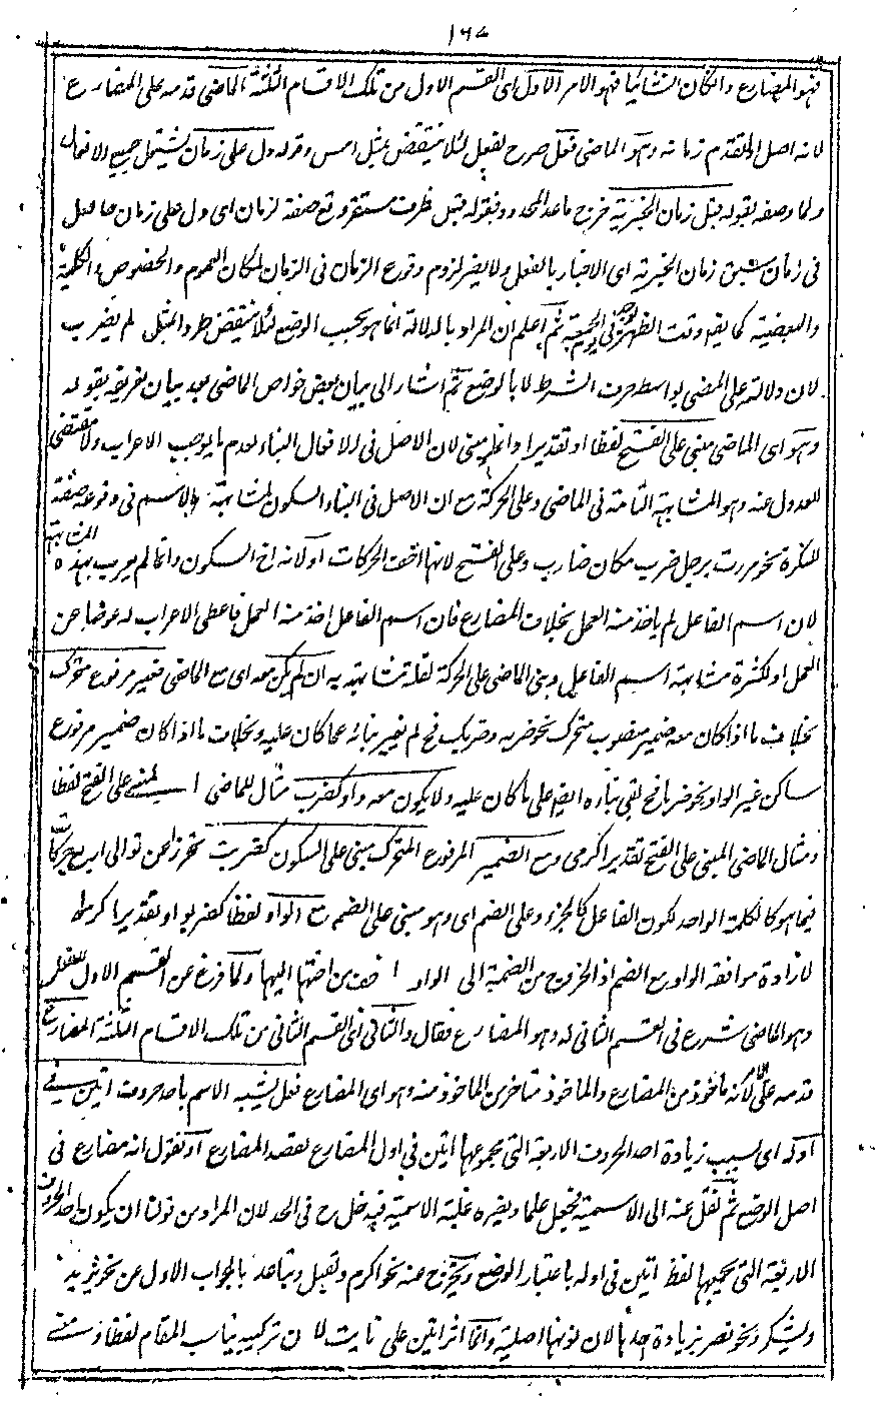 ١٦٤
فهو المضارع وان كان انشائيا فهو الامر الاول اى القسم الاول من تلك الاقسام الثلثة الماضى قدمه على المضارع
لانه اصل او لتقدم زمانه وهو اى الماضى فعل صرح لفعل لئلا ينتقض بمثل امس وقوله دل على زمان يشتمل جميع الافعال
ولما وصفه بقوله قبل زمان الخبرية خرج ما عدا المحدود فقوله قبل ظرف مستقر وقع صفة لزمان اى دل على زمان حاصل
فى زمان سبق زمان الخبرية اى الاخبار بالفعل ولا يضر لزوم وقوع الزمان فى الزمان لمكان العموم والخصوص والكلية
والبعضية كما يقع وقت الظهر فى يوم الجمعة ثم اعلم ان المراد بالدلالة انما هو بحسب الوضع لئلا ينتقض طرد المثل لم يضرب
لان دلالته على المضى بواسطة حرف الشرط لا بالوضع ثم اشار الى بيان بعض خواص الماضى بعد بيان تعريفه بقوله
وهو اى الماضى مبنى على الفتح لفظا او تقديرا وانما بنى لان الاصل فى الافعال البناء لعدم ما يوجب الاعراب ولا مقتضى
للعدول عنه وهو المشابهة التامة فى الماضى وعلى الحركة مع ان الاصل فى البناء السكون لمشابهته بالاسم فى وقوعه صفة
للنكرة نحو مررت برجل ضرب مكان ضارب وعلى الفتح لانها اخف الحركات او لانه اخ السكون وانما لم يعرب بهذه المشابهة
لان اسم الفاعل لم ياخذ منه العمل بخلاف المضارع فان اسم الفاعل اخذ منه العمل فاعطى الاعراب له عوضا عن
العمل او لكثرة مشابهته اسم الفاعل وبنى الماضى على الحركة لقلة مشابهته به ان لم يكن معه اى مع الماضى ضمير مرفوع متحرك
بخلاف ما اذا كان معه ضمير منصوب متحرك نحو ضربه وضربك فح لم يغير بنائه عما كان عليه وبخلاف ما اذا كان ضمير مرفوع
ساكن غير الواو نحو ضربا فح بقى بناءه ايضا على ما كان عليه ولا يكون معه واو كضرب مثال للماضى المبنى على الفتح لفظا
ومثال الماضى المبنى على الفتح تقديرا كرمى ومع الضمير المرفوع المتحرك مبنى على السكون كضربت تحرزا عن توالى اربع حركات
فيما هو كالكلمة الواحد لكون الفاعل كالجزء وعلى الضم اى وهو مبنى على الضم مع الواو لفظا كضربوا او تقديرا كرموا
لارادة موافقة الواو مع الضم اذ الخروج من الضمة الى الواو اخف من اختها اليها ولما فرغ عن القسم الاول للفعل
وهو الماضى شرع فى القسم الثانى له وهو المضارع فقال والثانى اى القسم الثانى من تلك الاقسام الثلثة المضارع
قدمه على الامر لانه ماخوذ من المضارع والماخوذ متاخر من الماخوذ منه وهو اى المضارع فعل يشبه الاسم باحد حروف اتين فى
اوله اى بسبب زيادة احد الحروف الاربعة التى مجموعها اتين فى اول المضارع لقصد المضارع او نقول انه مضارع فى
اصل الوضع ثم نقل عنه الى الاسمية فجعل علما وبغيره غلبة الاسمية فيدخل ح فى الحد لان المراد من قولنا ان يكون احد الحروف
الاربعة التى يجمعها لفظ اتين فى اوله باعتبار الوضع ويخرج عنه نحو اكرم وتقبل وتباعد بالجواب الاول عن نحو يزيد
ويشكر ونحو نصر بزيادة احدها لان نونها اصلية وانما اثر اتين على نايت لان تركيبه يناسب المقام لفظا ومعنى